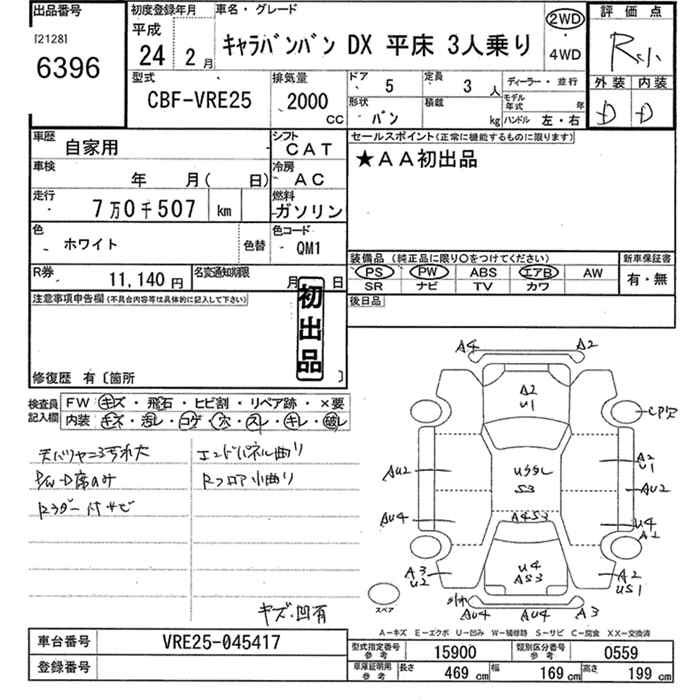 出品番号 初度登録年月 車名・グレード 評価点
[2128] 6396
平成 24 2月 キャラバンバン DX 平床 3人乗り 2WD・4WD R
外装 内装
D D
型式 CBF-VRE25 排気量 2000 cc
ドア 5 定員 3人 ディーラー・並行
形状 バン 積載 kg モデル年式 年 ハンドル 左・右
車歴 自家用 シフト CAT
セールスポイント(正常に機能するものに限ります)
★AA初出品
車検 年 月( 日) 冷房 AC
走行 7万0千507 km 燃料 ガソリン
色 ホワイト 色替 色コード QM1
装備品(純正品に限り○をつけてください) 新車保証書
PS PW ABS エアB AW 有・無
SR ナビ TV カワ
R券 11,140円 名変通知期限 月 日
後日品
注意事項申告欄(不具合内容等は具体的に記入して下さい)
初出品
修復歴 有〔箇所 〕
検査員記入欄 FW キズ・飛石・ヒビ割・リペア跡・×要
内装 キズ・汚レ・コゲ・穴・スレ・キレ・破レ
エンドパネル曲り
Rフロア小曲り
キズ・凹有
A4 A2
A2 U1
AU2 A2 U1
S3 AU2
AU4 A4S3 U4 A2
A3 U2 U4 AS3 A2 US1
スペア AU4 AU4 A3
A-キズ E-エクボ U-凹み W-補修跡 S-サビ C-腐食 XX-交換済
車台番号 VRE25-045417
登録番号
型式指定番号 参考 15900 類別区分番号 参考 0559
車庫証明用 参考 長さ 469 cm 幅 169 cm 高さ 199 cm